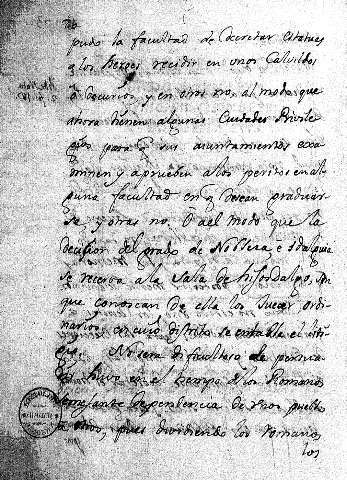 pudo la facultad de Decretar estatues
q̃ los herges recidir en unos Cavildos
ò Decurios, y en otros no, al modo que
ahora tienen algunas Ciudades Privile
gios para q̃ sus aiuntamientos exa
minen y aprueben a los peritos en al
guna facultad en q̃ desean graduar
se, y otras no. O al modo que la
decision del grado de Nobleza è Idalguia
se reserva à la Sala de hijosdalgo, sin
que conoscan de ella los Jueces ordi
narios, en cuio distrito se entabla el liti
gio. No sera dificultoso de persua
hubo en el tiempo de los Romanos
semejante dependencia de unos pueblos
à otros, pues dividiendo los romanos
los